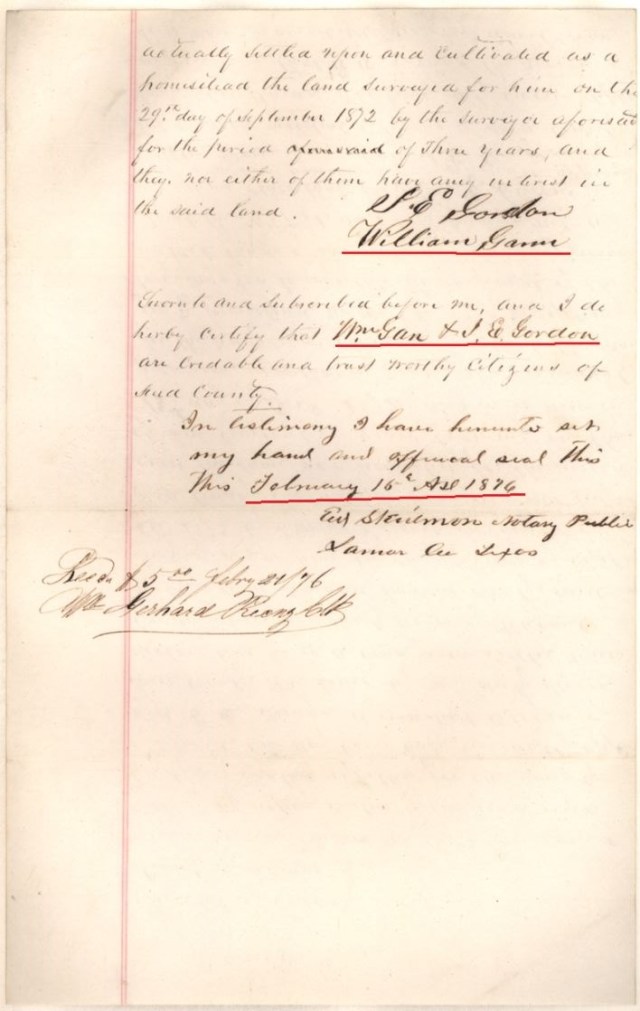 actually settled upon and cultivated as a
homestead the land surveyed for him on the
29th day of September 1872 by the surveyor aforesaid
for the period aforesaid of Three years, and
they nor either of them have any interest in
the said land.
S. E. Gordon
William Gann
Sworn to and Subscribed before me, and I do
herby certify that Wm Gan & S. E. Gordon
are credable and trust worthy Citizens of
said County.
In testimony I have hereunto set
my hand and official seal This
This February 16th AD 1876
Notary Public
Lamar Co Texas
Recd $5.00 Febry 21/76
Gerhard Recng Clk